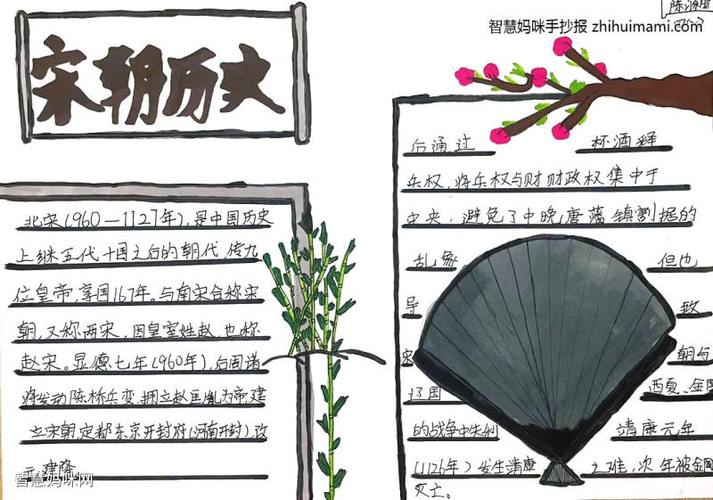 智慧妈咪手抄报 zhihuimami.com
宋朝历史
北宋(960—1127年),是中国历史
上继五代十国之后的朝代,传九
位皇帝,享国167年。与南宋合称宋
朝,又称两宋,因皇室姓赵,也称
赵宋。显德七年(960年),后周诸
将发动陈桥兵变,拥立赵匡胤为帝,建
立宋朝,定都东京开封府(河南开封),改
元建隆
后通过 杯酒释
兵权,将兵权与财财政权集中于
中央,避免了中晚唐藩镇割据的
乱象 但也
导 致
宋 朝与
邻国 西夏、金国
的战争中失利 靖康元年
(1126年)发生靖康 之难,次年被金国
灭亡。
智慧妈咪网